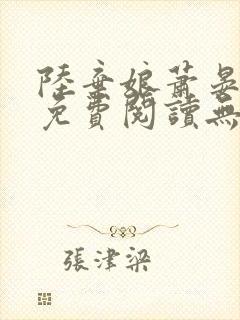 陸棄娘蕭晏
免費閱讀無
張津梁